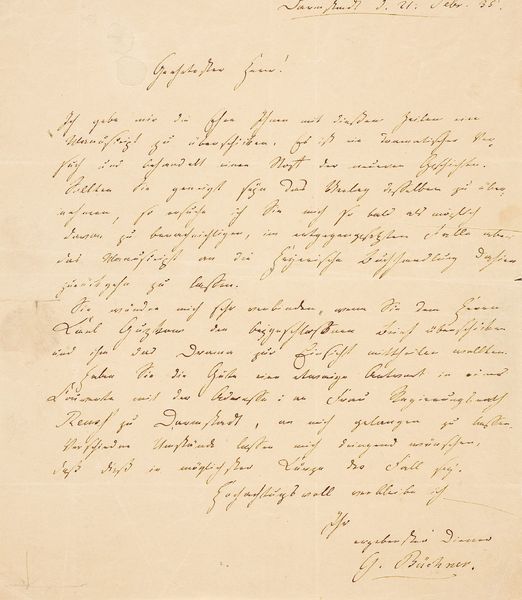 Darmstadt d. 21. Febr. 35.
Geehrtester Herr!
Ich gebe mir die Ehre Ihnen mit diesen Zeilen ein
Manuscript zu überschicken. Es ist ein dramatischer Ver-
such und behandelt einen Stoff der neueren Geschichte.
Sollten Sie geneigt seyn das Verlag desselben zu über-
nehmen, so ersuche ich Sie mich so bald als möglich
davon zu benachrichtigen, im entgegengesetzten Falle aber
das Manuscript an die Heyerische Buchhandlung dahier
zurückgehn zu lassen.
Sie würden mich sehr verbinden, wenn Sie dem Herrn
Karl Gützkow den beygeschlossnen Brief überschicken
und ihm das Drama zur Einsicht mittheilen wollten.
Haben Sie die Güte eine etwaige Antwort in einer
Couverte mit der Adresse: an Frau Regierungsrath
Reuss zu Darmstadt, an mich gelangen zu lassen.
Verschiedne Umstände lassen mich dringend wünschen,
daß dieß in möglichster Kürze der Fall sey.
Hochachtungsvoll verbleibe ich
Ihr
ergebenster Diener
G. Büchner.